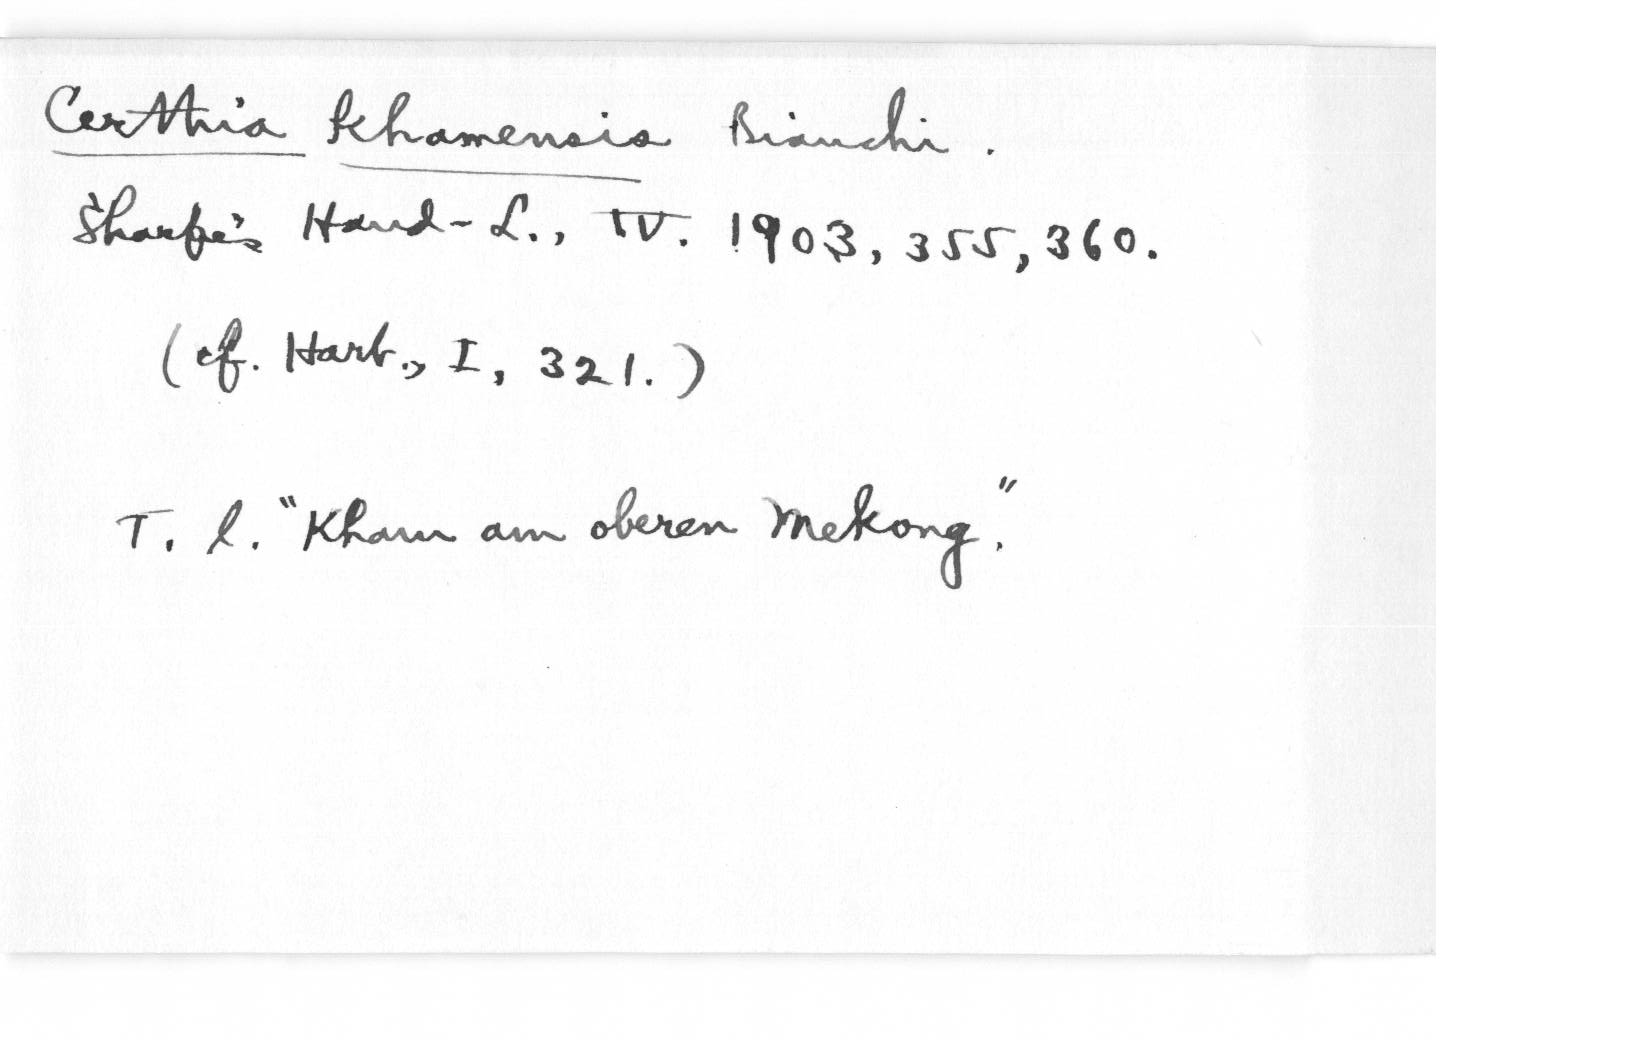 Certhia khamensis Bianchi.
Sharpe's Hand-L., IV. 1903, 355, 360.
(cf. Hart., I, 321.)
T. l. "Kham am oberen Mekong."